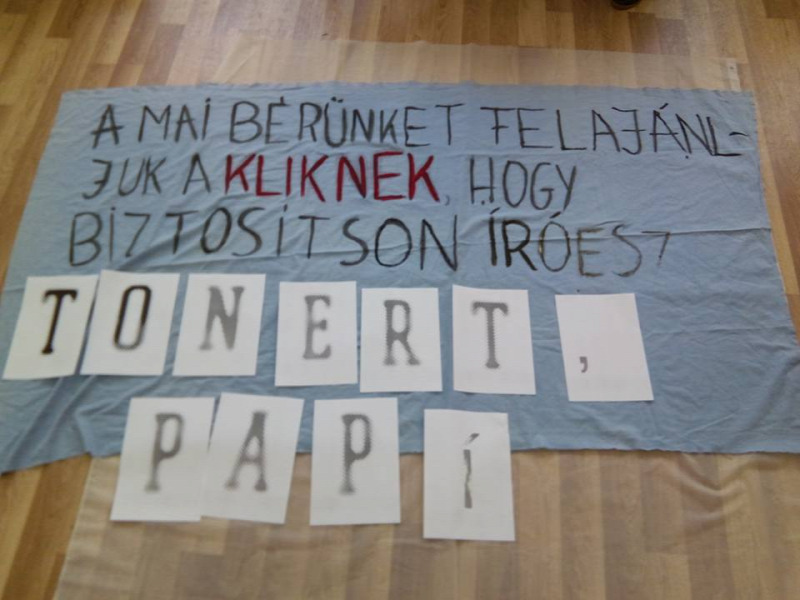 A MAI BÉRÜNKET FELAJÁNL-
JUK A KLIKNEK, HOGY
BIZTOSÍTSON ÍRÓESZ
TONERT,
PAPÍ